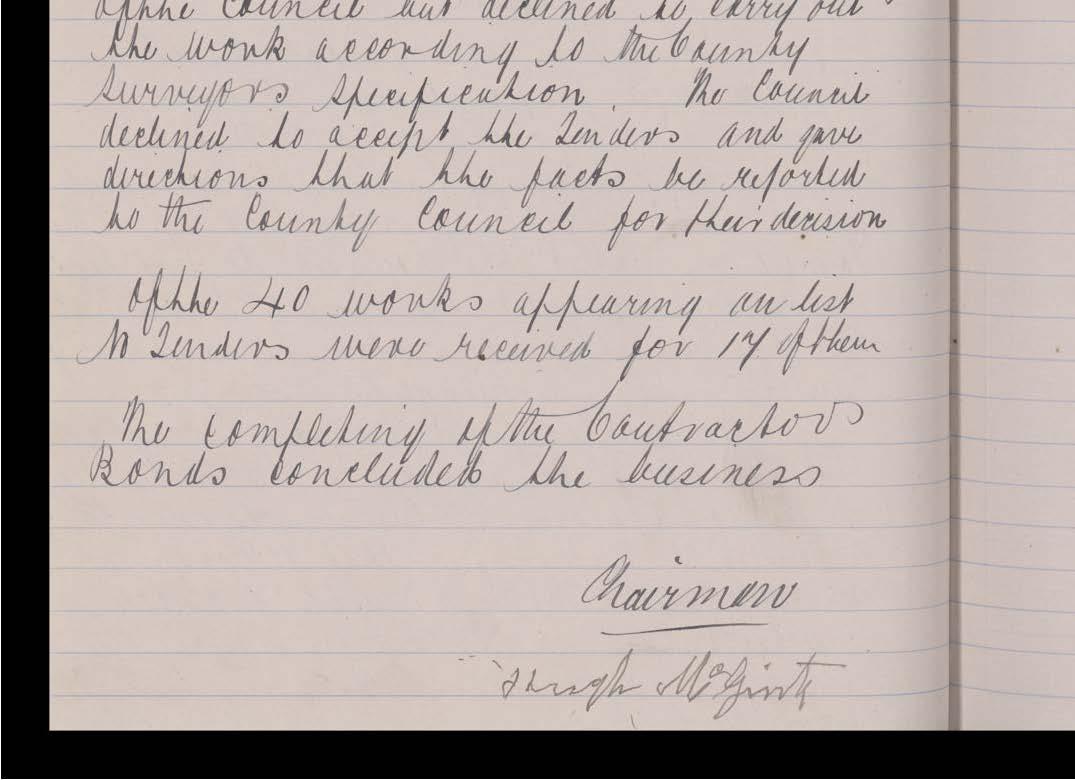 of the Council but declined to carry out
the work according to the County
Surveyors Specification. The Council
declined to accept the Tenders and gave
directions that the facts be reported
to the County Council for their decision
Of the 40 works appearing on list
No Tenders were received for 17 of them
The completing of the Contractors
Bonds concluded the business
Chairman